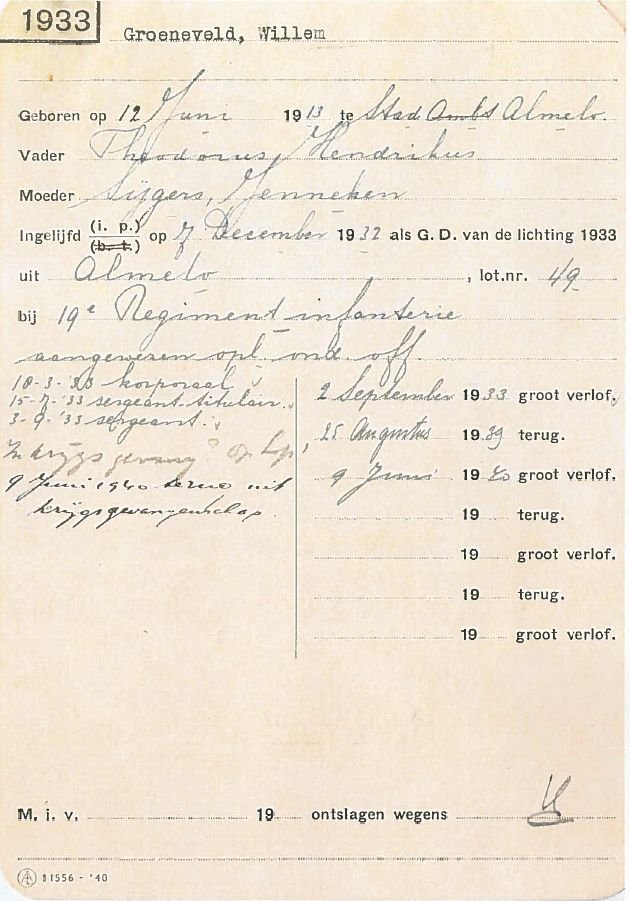 1933
Groeneveld, Willem
Geboren op 12 Juni 1913 te Stad Ambt Almelo.
Vader Theodorus Hendrikus
Moeder Sijgers, Jenneken
Ingelijfd (i. p.) (b. t.) op 7 December 1932 als G. D. van de lichting 1933
uit Almelo, lot.nr. 49
bij 19e Regiment infanterie
aangewezen opl. ond. off.
18-3-'33 korporaal
15-7-'33 sergeant-titulair.
3-9-'33 sergeant.
In krijgsgevang?
9 Juni 1940 terug uit
krijgsgevangenschap.
2 September 1933 groot verlof.
25 Augustus 1939 terug.
9 Juni 1940 groot verlof.
19 terug.
19 groot verlof.
19 terug.
19 groot verlof.
M. i. v. 19 ontslagen wegens
11556 - '40